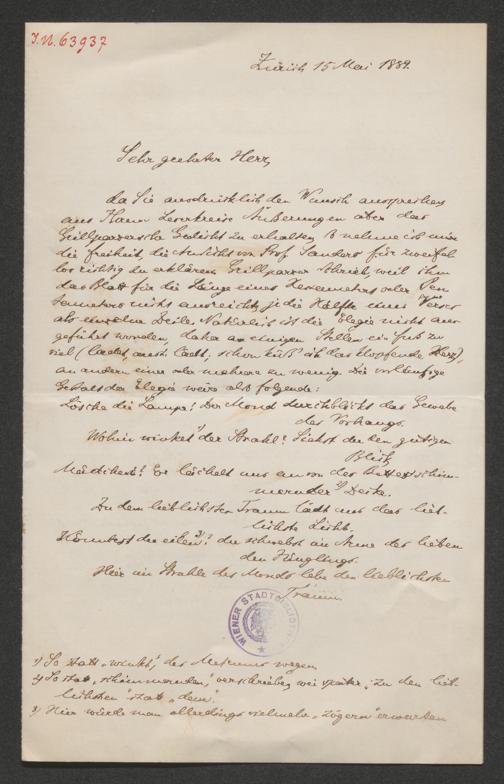 I.N. 63937
Zürich 15 Mai 1889.
Sehr geehrter Herr,
da Sie ausdrücklich den Wunsch aussprechen
aus Ihrem Leserkreise Äußerungen über das
Grillparzersche Gedicht zu erhalten, so nehme ich mir
die Freiheit die Ansicht von Prof. Sanders für zweifel
los richtig zu erklären. Grillparzer schrieb, weil ihm
das Blatt für die Länge eines Hexameters oder Pen
tameters nicht ausreichte, je die Hälfte eines Verses
als einzelne Zeile. Natürlich ist die Elegie nicht aus
geführt worden, daher an einigen Stellen ein Fuß zu
viel (lachet, das klopfende Herz),
an andern einer oder mehrere zu wenig. Die vorläufige
Gestalt der Elegie wäre also folgende:
Lösche die Lampe! Der Mond durchblickt das Gewebe
des Vorhangs.
Wohin winket¹⁾ der Strahl? Siehst du den gütigen
Blick,
Mädchen? Er lächelt uns an von der
mernder²⁾ Decke.
Zu dem lieblichsten Traum lädt uns das lieb-
lichste Licht.
du eilen³⁾? du schwebst im Arme des lieben
den Jünglings.
Hier im Strahle des Monds lebe den lieblichsten
Traum
WIENER STADTBIBLIOTHEK
1) So statt „winkt“, des Metrums wegen
2) So statt „schimmernden“, verschrieben wie später „zu den lieb-
lichsten“ statt „dem“.
3) Hier würde man allerdings vielmehr „zögern“ erwarten